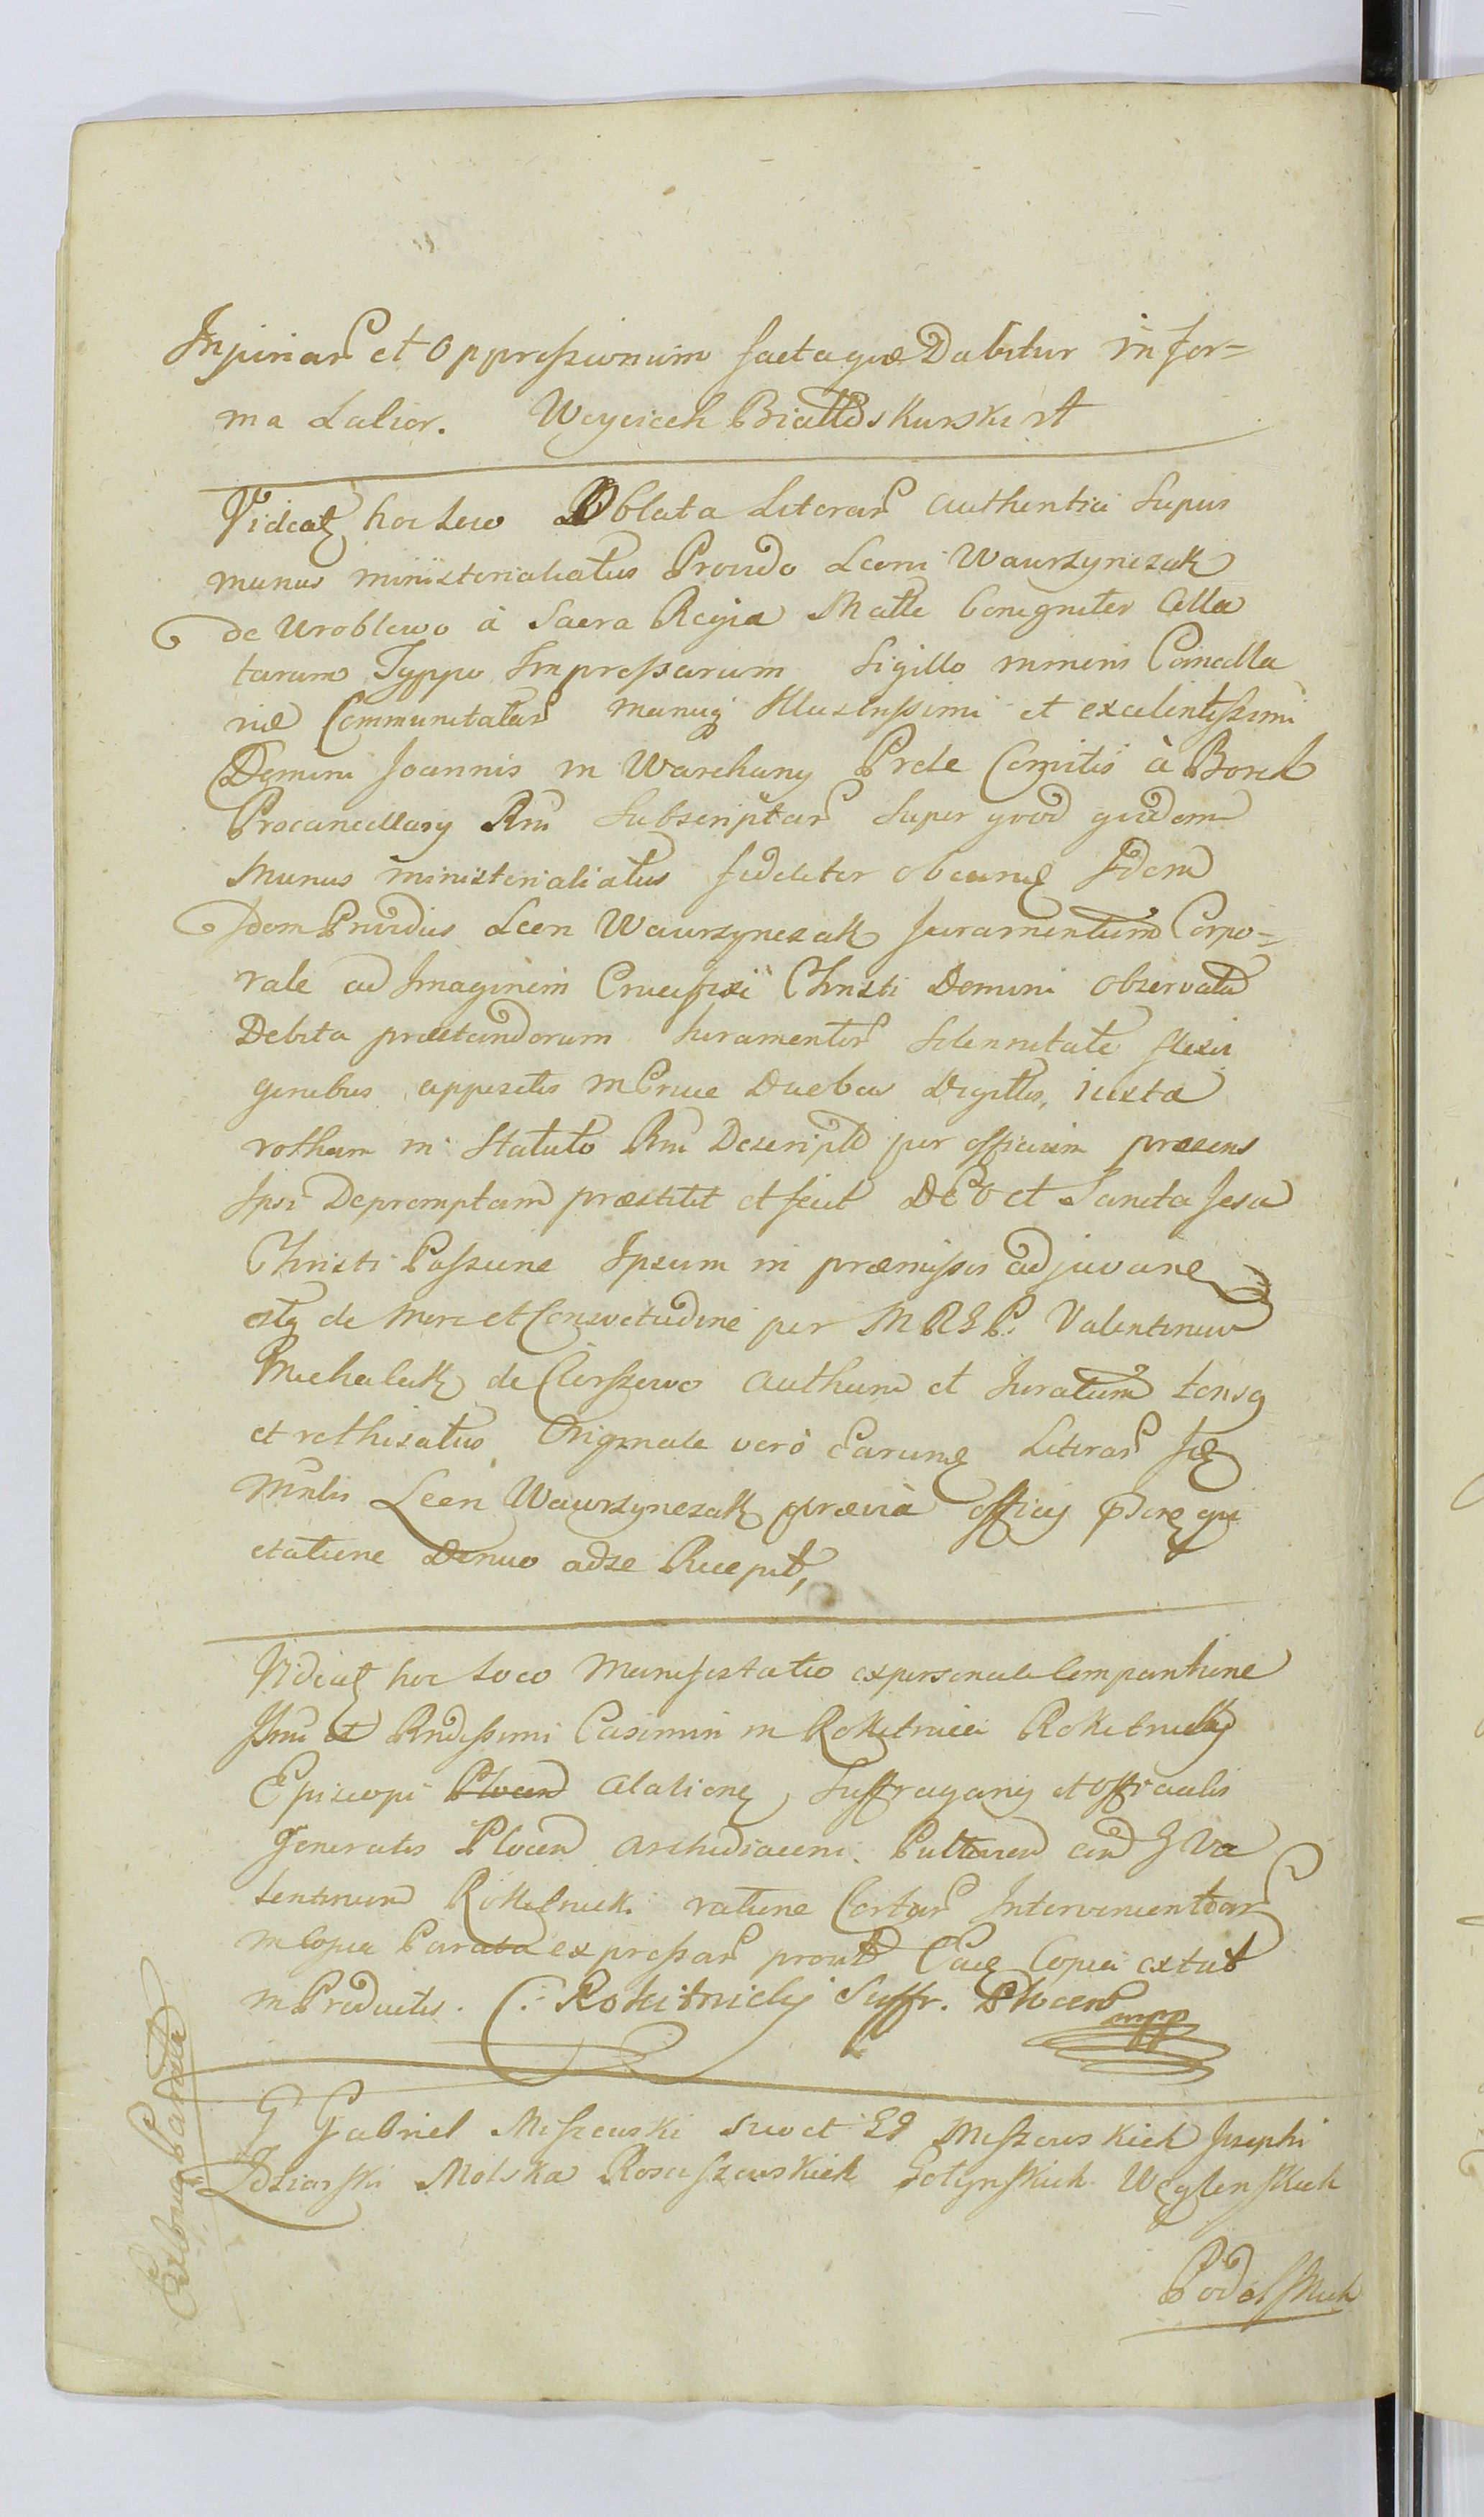 Injuriar et oppressionum factaque Dabitur in for-
ma Latior. Woyciech Białłoskurski st
Videatz hoc Loco Oblata Literar authentici Supus
munus ministerialatus Provido Leoni Wawrzynczak
de Wroblewo à Sacra Regia Matte benigniter Colla
tarum Typpo Impressarum Sigillo minoris Cancella
riæ Communitatar manuq Illustrissimi et excelentissimi
Domini Joannis in Warchany Prele Comitis à Borch
Procancellary Rni Subscriptar Super quod quidem
Munus ministerialiatus fideliter obeund Idem
Idem Providus Leon Wawrzynczak Juramentum Corpo-
rale ad Imaginem Crucifixi Christi Domini observata
Debita præstandorum Juramentor solennitate flexis
genibus appositis in Cruce Duobus Digittis, iuxta
rotham in Statuto Rni Descripta per officium præsens
Ipsi Depromptam præstitit et fecit DEO et Sancta Jesu
Christi Passione Ipsum in præmissis adjuvane
estq de More et Consvetudine per MRGP. Valentinum
Michalak de Ciorszewo authum et Juratum
et rethisatus Originale verò Earund Literar Id
Mnlis Leon Wawrzynczak prævià officij qui
etatione Denuo ad se Recepit,
Videatz hoc Loco Manifestatio ex personali Comparitione
Illmi et Rndissimi Casimiri in Rokitnica Rokitnicky
Episcopi Plocen Calalionen Suffragany et officialis
Generalis Plocen Archidiaconi Pultoven con G Va
lentinum Rokitnicki ratione Certar Intervenientiar
in Copia Parata expressar prout Ead Copia extat
in Productis. C: Rokitnicky Suffr. Plocen mpp
G Gabriel Miszewski suo et GG Miszewskich Josephi
Idziarski Molska Rosciszewskich Golynskich Węglenskich
Podolskich
Exlong Parata